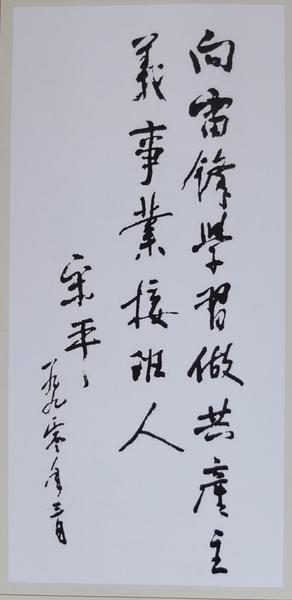 向雷锋學習做共產主
義事業接班人
宋平
一九九零年三月